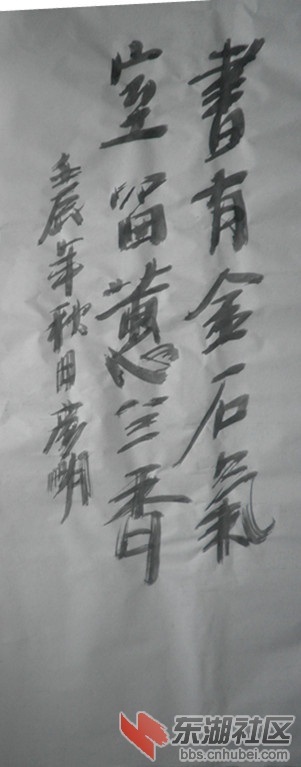 書有金石氣
室留蕙兰香
壬辰年秋田彦明
东湖社区
bbs.cnhubei.com